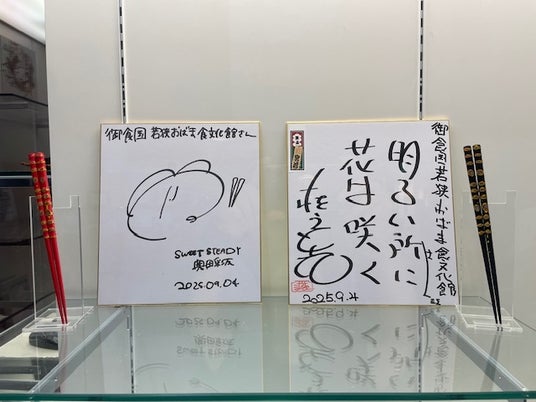 御食国 若狭おばま食文化館さん
SWEET STEADY
奥田彩友
2025.09.04
御食国若狭おばま食文化館
さん
明るい所に
花は咲く
2025.9.4